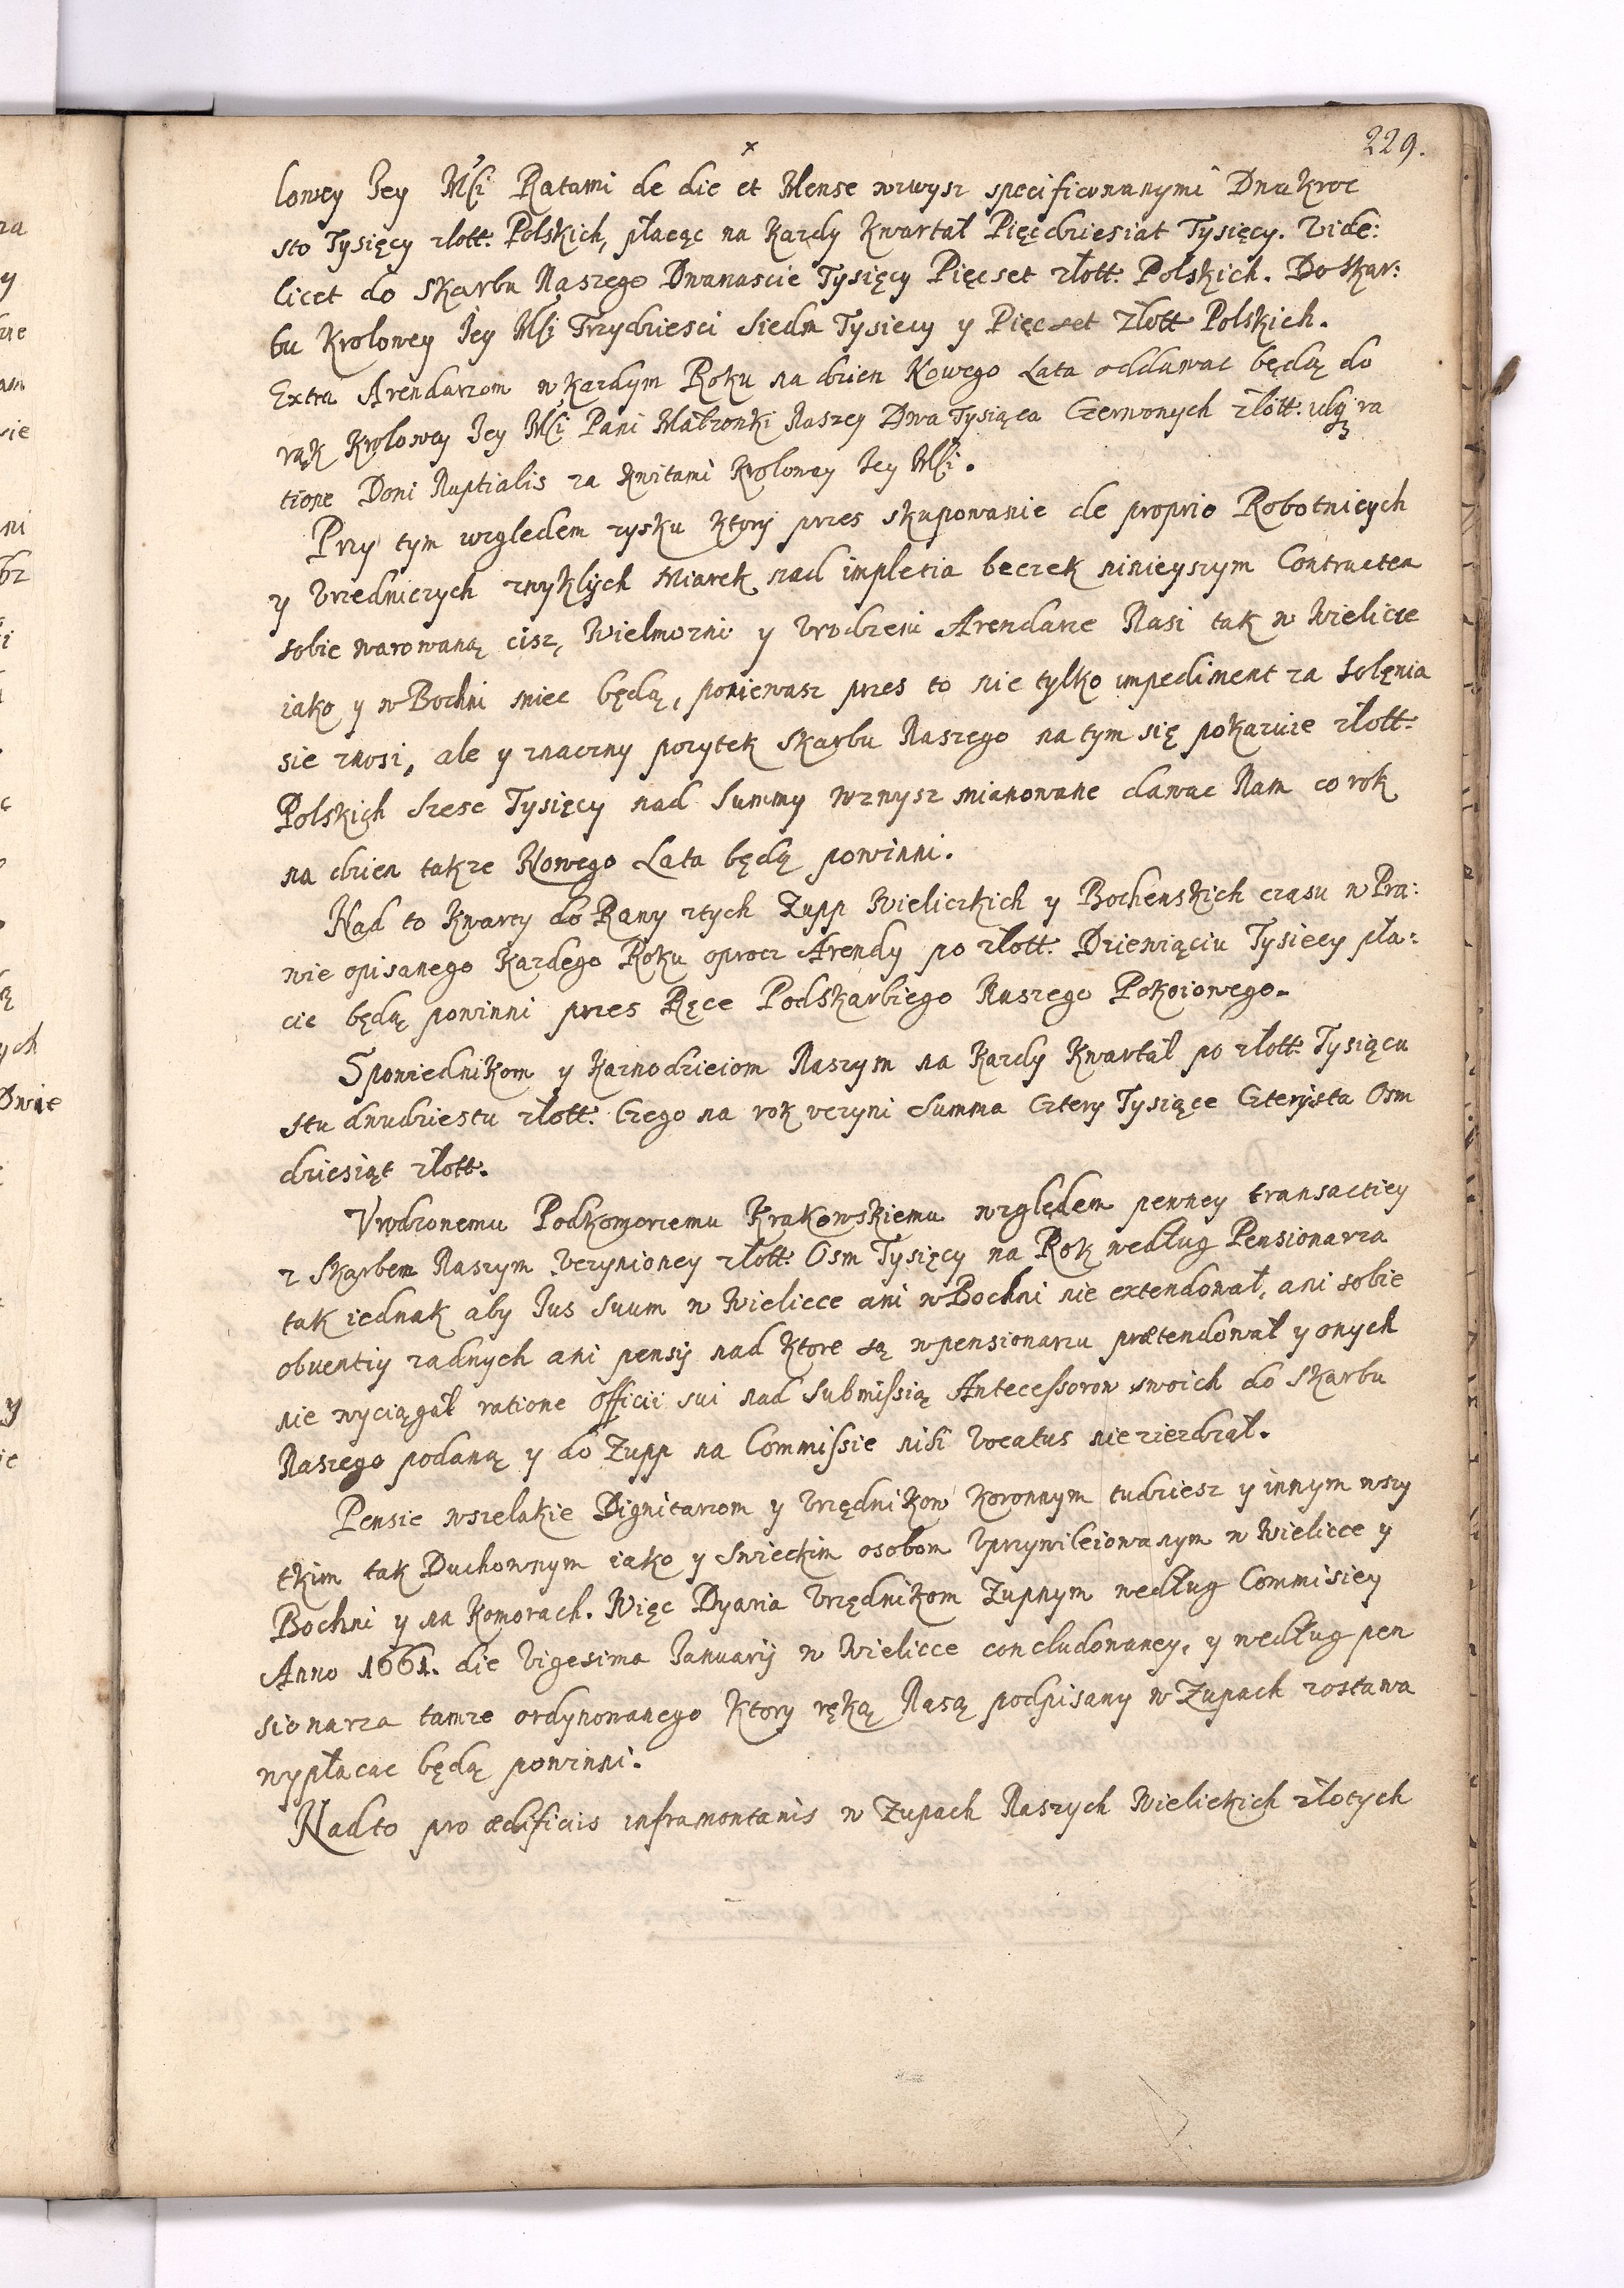 229.
lowey Jey Mści Ratami de die et Mense wzwysz specificowanymi Dwakroc
sto Tysięcy złott: Polskich, płacąc na kazdy kwartał Pięcdziesiat Tysięcy. Vide:
licet do Skarbu Naszego Dwanascie Tysięcy Pięcset złott: Polskich. Do Skar:
bu Krolowey Jey Mści Trzydziesci Siedm Tysiecy y Pięcset Złott Polskich.
Extra Arendarzom w kazdym Roku na dzien Nowego Lata oddawac będą do
rąk Krolowey Jey Mści Pani Małzonki Naszey Dwa Tysiąca Czerwonych złott: ra
tione Doni Nuptialis za kwitami Krolowey Jey Mści.
Przy tym wzgledem zysku ktory przes skupowanie de proprio Robotnicych
y Vrzedniczych zwyklych Miarek nad impletia beczek ninieyszym Contractem
sobie warowaną cisz, Wielmozni y Vrodzeni Arendarze Nasi tak w Wielicze
iako y w Bochni miec będą, poniewasz przes to nie tylko impediment za Solęnia
sie znosi, ale y znaczny pozytek Skarbu Naszego na tym się pokazuie złott:
Polskich Szesc Tysięcy nad Summy wzwysz mianowane dawac Nam co rok
na dzien takze Nowego Lata będą powinni.
Nad to kwarty do Rawy ztych Zupp Wieliczkich y Bochenskich czasu w Pra:
wie opisanego kazdego Roku oprocz Arendy po złott: Dziewiąciu Tysiecy pła:
cic będą powinni przes Ręce Podskarbiego Naszego Pokoiowego.
Spowiednikom y Kaznodzieiom Naszym na kazdy kwartał po złott: Tysiącu
stu dwudziestu złott: Czego na rok vczyni Summa Cztery Tysiące Czterysta Osm
dziesiąt złott.
Vrodzonemu Podkomorzemu Krakowskiemu względem pewney transactiey
z Skarbem Naszym vczynioney złott: Osm Tysięcy na Rok według Pensionarza
tak iednak aby Jus Suum w Wielicce ani w Bochni nie extendował, ani sobie
obventiy zadnych ani pensij nad ktore są w pensionarzu prætendował y onych
nie wyciągał ratione Officii sui nad Submissią Antecessorow swoich do Skarbu
Naszego podaną y do Zupp na Commissie nisi Vocatus nie ziezdzał.
Pensie wszelakie Dignitarzom y Vrzędnikow Koronnym tudziesz y innym wszy
tkim tak Duchownym iako y Swieckim osobom Vprzywileiowanym w Wielicce y
Bochni y na Komorach. Więc Dyaria Vrzędnikom Zupnym według Commisiey
Anno 1661. die Vigesima Januarij w Wielicce concludowaney, y według pen
sionarza tamze ordynowanego ktory ręką Nasą podpisany w Zupach zostawa
wypłacac będą powinni.
Nadto pro ædificiis inframontanis w Zupach Naszych Wielickich złotych